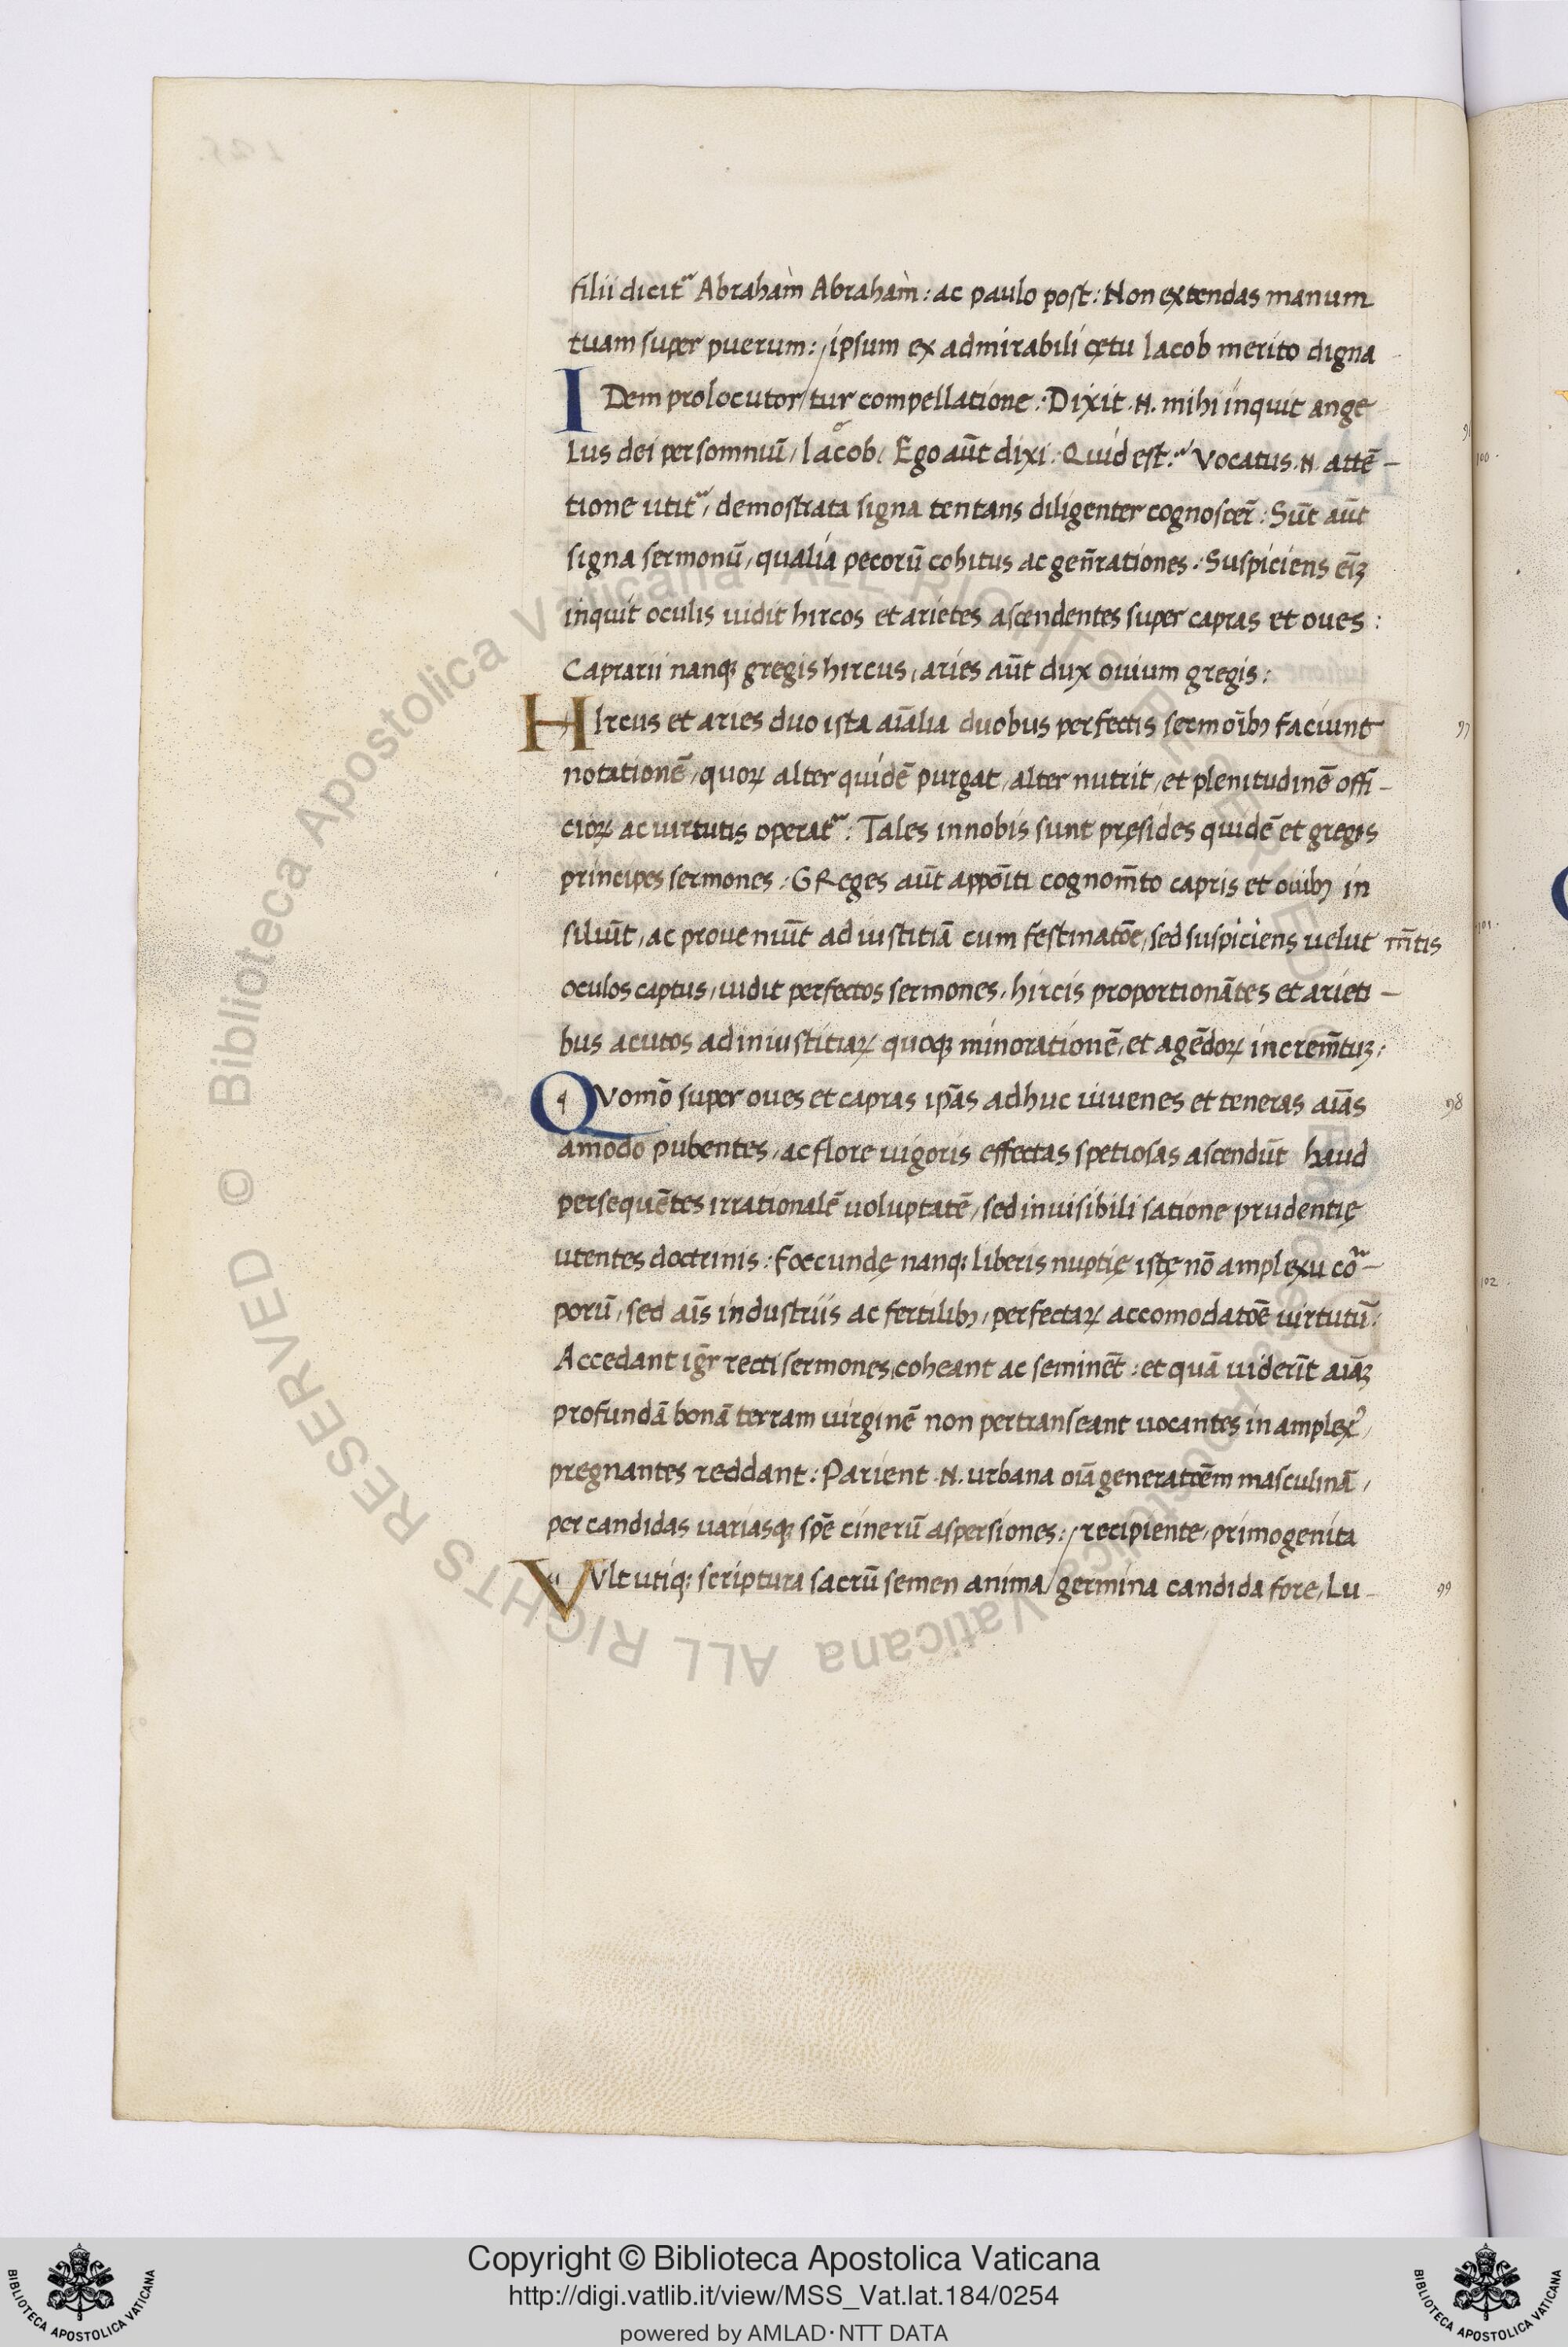 filii dicit᷑ Abraham̀ Abraham̀: ac paulo post: Non extendas manum
tuam super puerum: / ipsum ex admirabili cętu Iacob merito digna
IDem prolocutor / tur compellatione: Dixit .N. mihi inquit ange
Lus dei per somnuū, Iacob. Ego aūt dixi. Quid est: Vocatus .N. attē-
tione utit᷑, demostrata signa tentans diligenter cognoscer̄: Sūt aūt
signa sermonū, qualia pecorū cohitus ac gen̄rationes: Suspiciens eīꝫ
inquit oculis uidit hircos et arietes ascendentes super capras et oues:
Caprarii nanqꝫ gregis hircus, aries aūt dux ouium gregis:
HIrcus et aries duo ista aīalia duobus perfectis sermoībꝫ faciunt
notationē, quoꝝ alter quidē purgat, alter nutrit, et plenitudinē offi-
cioꝝ ac uirtutis operat᷑: Tales in nobis sunt pręsides quidē et gregis
principes sermones: GReges aūt appōiti cognom̄to capris et ouibꝫ in
siliūt, ac proueniūt ad iustitiā cum festinatōe, sed suspiciens uelut m̄tis
oculos captus, uidit perfectos sermones, hircis proportionātes et arieti-
bus acutos ad iniustitiaꝝ quoqꝫ minorationē, et agēdoꝝ increm̄tuꝫ:
QVomō super oues et capras ipās adhuc iuuenes et teneras aīas
amodo pubentes, ac flore uigoris effectas spetiosas ascendūt haud
persequētes irrationalē uoluptatē, sed inuisibili satione prudentię
utentes doctrinis: Foecundę nanqꝫ liberis nuptię istę nō amplexu cō᷑-
porū, sed aīs industriis ac fertilibꝫ, perfectaꝝ accomodatōe uirtutū:
Accedant iḡr recti sermones, coheant ac seminēt: et quā uiderīt aīaꝫ
profundā bonā terram uirginē non pertranseant uocantes in amplexꝰ,
pregnantes reddant: Parient .N. urbana oīa generatōem masculinā,
per candidas uariasqꝫ spē cinerū aspersiones: / recipiente, primogenita
VVlt utiqꝫ scriptura sacrū semen anima / germina candida fore, Lu-
97
98
99
100
101
102
Copyright © Biblioteca Apostolica Vaticana
http://digi.vatlib.it/view/MSS_Vat.lat.184/0254
powered by AMLAD·NTT DATA
BIBLIOTECA APOSTOLICA VATICANA
BIBLIOTECA APOSTOLICA VATICANA
© Biblioteca Apostolica Vaticana ALL RIGHTS RESERVED